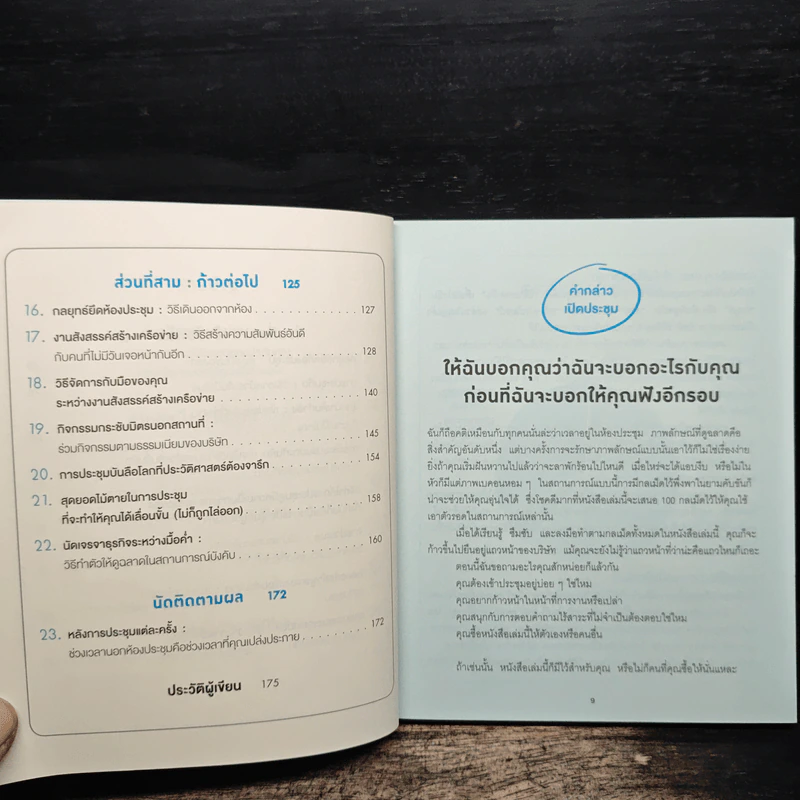 ส่วนที่สาม : ก้าวต่อไป 125
16. กลยุทธ์ยึดห้องประชุม : วิธีเดินออกจากห้อง 127
17. งานสังสรรค์สร้างเครือข่าย : วิธีสร้างความสัมพันธ์อันดี
กับคนที่ไม่มีวันเจอหน้ากันอีก 128
18. วิธีจัดการกับมือของคุณ
ระหว่างงานสังสรรค์สร้างเครือข่าย 140
19. กิจกรรมกระชับมิตรนอกสถานที่ :
ร่วมกิจกรรมตามธรรมเนียมของบริษัท 145
20. การประชุมบันลือโลกที่ประวัติศาสตร์ต้องจารึก 154
21. สุดยอดไม้ตายในการประชุม
ที่จะทำให้คุณได้เลื่อนขั้น (ไม่ก็ถูกไล่ออก) 158
22. นัดเจรจาธุรกิจระหว่างมื้อค่ำ :
วิธีทำตัวให้ดูฉลาดในสถานการณ์บังคับ 160
นัดติดตามผล 172
23. หลังการประชุมแต่ละครั้ง :
ช่วงเวลานอกห้องประชุมคือช่วงเวลาที่คุณเปล่งประกาย 172
ประวัติผู้เขียน 175
คำกล่าว
เปิดประชุม
ให้ฉันบอกคุณว่าฉันจะบอกอะไรกับคุณ
ก่อนที่ฉันจะบอกให้คุณฟังอีกรอบ
ฉันก็ถือคติเหมือนกับทุกคนนั่นล่ะว่าเวลาอยู่ในห้องประชุม ภาพลักษณ์ที่ดูฉลาดคือ
สิ่งสำคัญอันดับหนึ่ง แต่บางครั้งการจะรักษาภาพลักษณ์แบบนั้นเอาไว้ก็ไม่ใช่เรื่องง่าย
ยิ่งถ้าคุณเริ่มฝันหวานไปแล้วว่าจะลาพักร้อนไปไหนดี เมื่อไหร่จะได้แอบงีบ หรือไม่ใน
หัวก็มีแต่ภาพเบคอนหอม ๆ ในสถานการณ์แบบนี้การมีกลเม็ดไว้พึ่งพาในยามคับขันก็
น่าจะช่วยให้คุณอุ่นใจได้ ซึ่งโชคดีมากที่หนังสือเล่มนี้จะเสนอ 100 กลเม็ดไว้ให้คุณใช้
เอาตัวรอดในสถานการณ์เหล่านั้น
เมื่อได้เรียนรู้ ซึมซับ และลงมือทำตามกลเม็ดทั้งหมดในหนังสือเล่มนี้ คุณก็จะ
ก้าวขึ้นไปยืนอยู่แถวหน้าของบริษัท แม้คุณจะยังไม่รู้ว่าแถวหน้าที่ว่าน่ะคือแถวไหนก็เถอะ
ตอนนี้ฉันขอถามอะไรคุณสักหน่อยก็แล้วกัน
คุณต้องเข้าประชุมอยู่บ่อย ๆ ใช่ไหม
คุณอยากก้าวหน้าในหน้าที่การงานหรือเปล่า
คุณสนุกกับการตอบคำถามไร้สาระที่ไม่จำเป็นต้องตอบใช่ไหม
คุณซื้อหนังสือเล่มนี้ให้ตัวเองหรือคนอื่น
ถ้าเช่นนั้น หนังสือเล่มนี้ก็มีไว้สำหรับคุณ หรือไม่ก็คนที่คุณซื้อให้นั่นแหละ
9